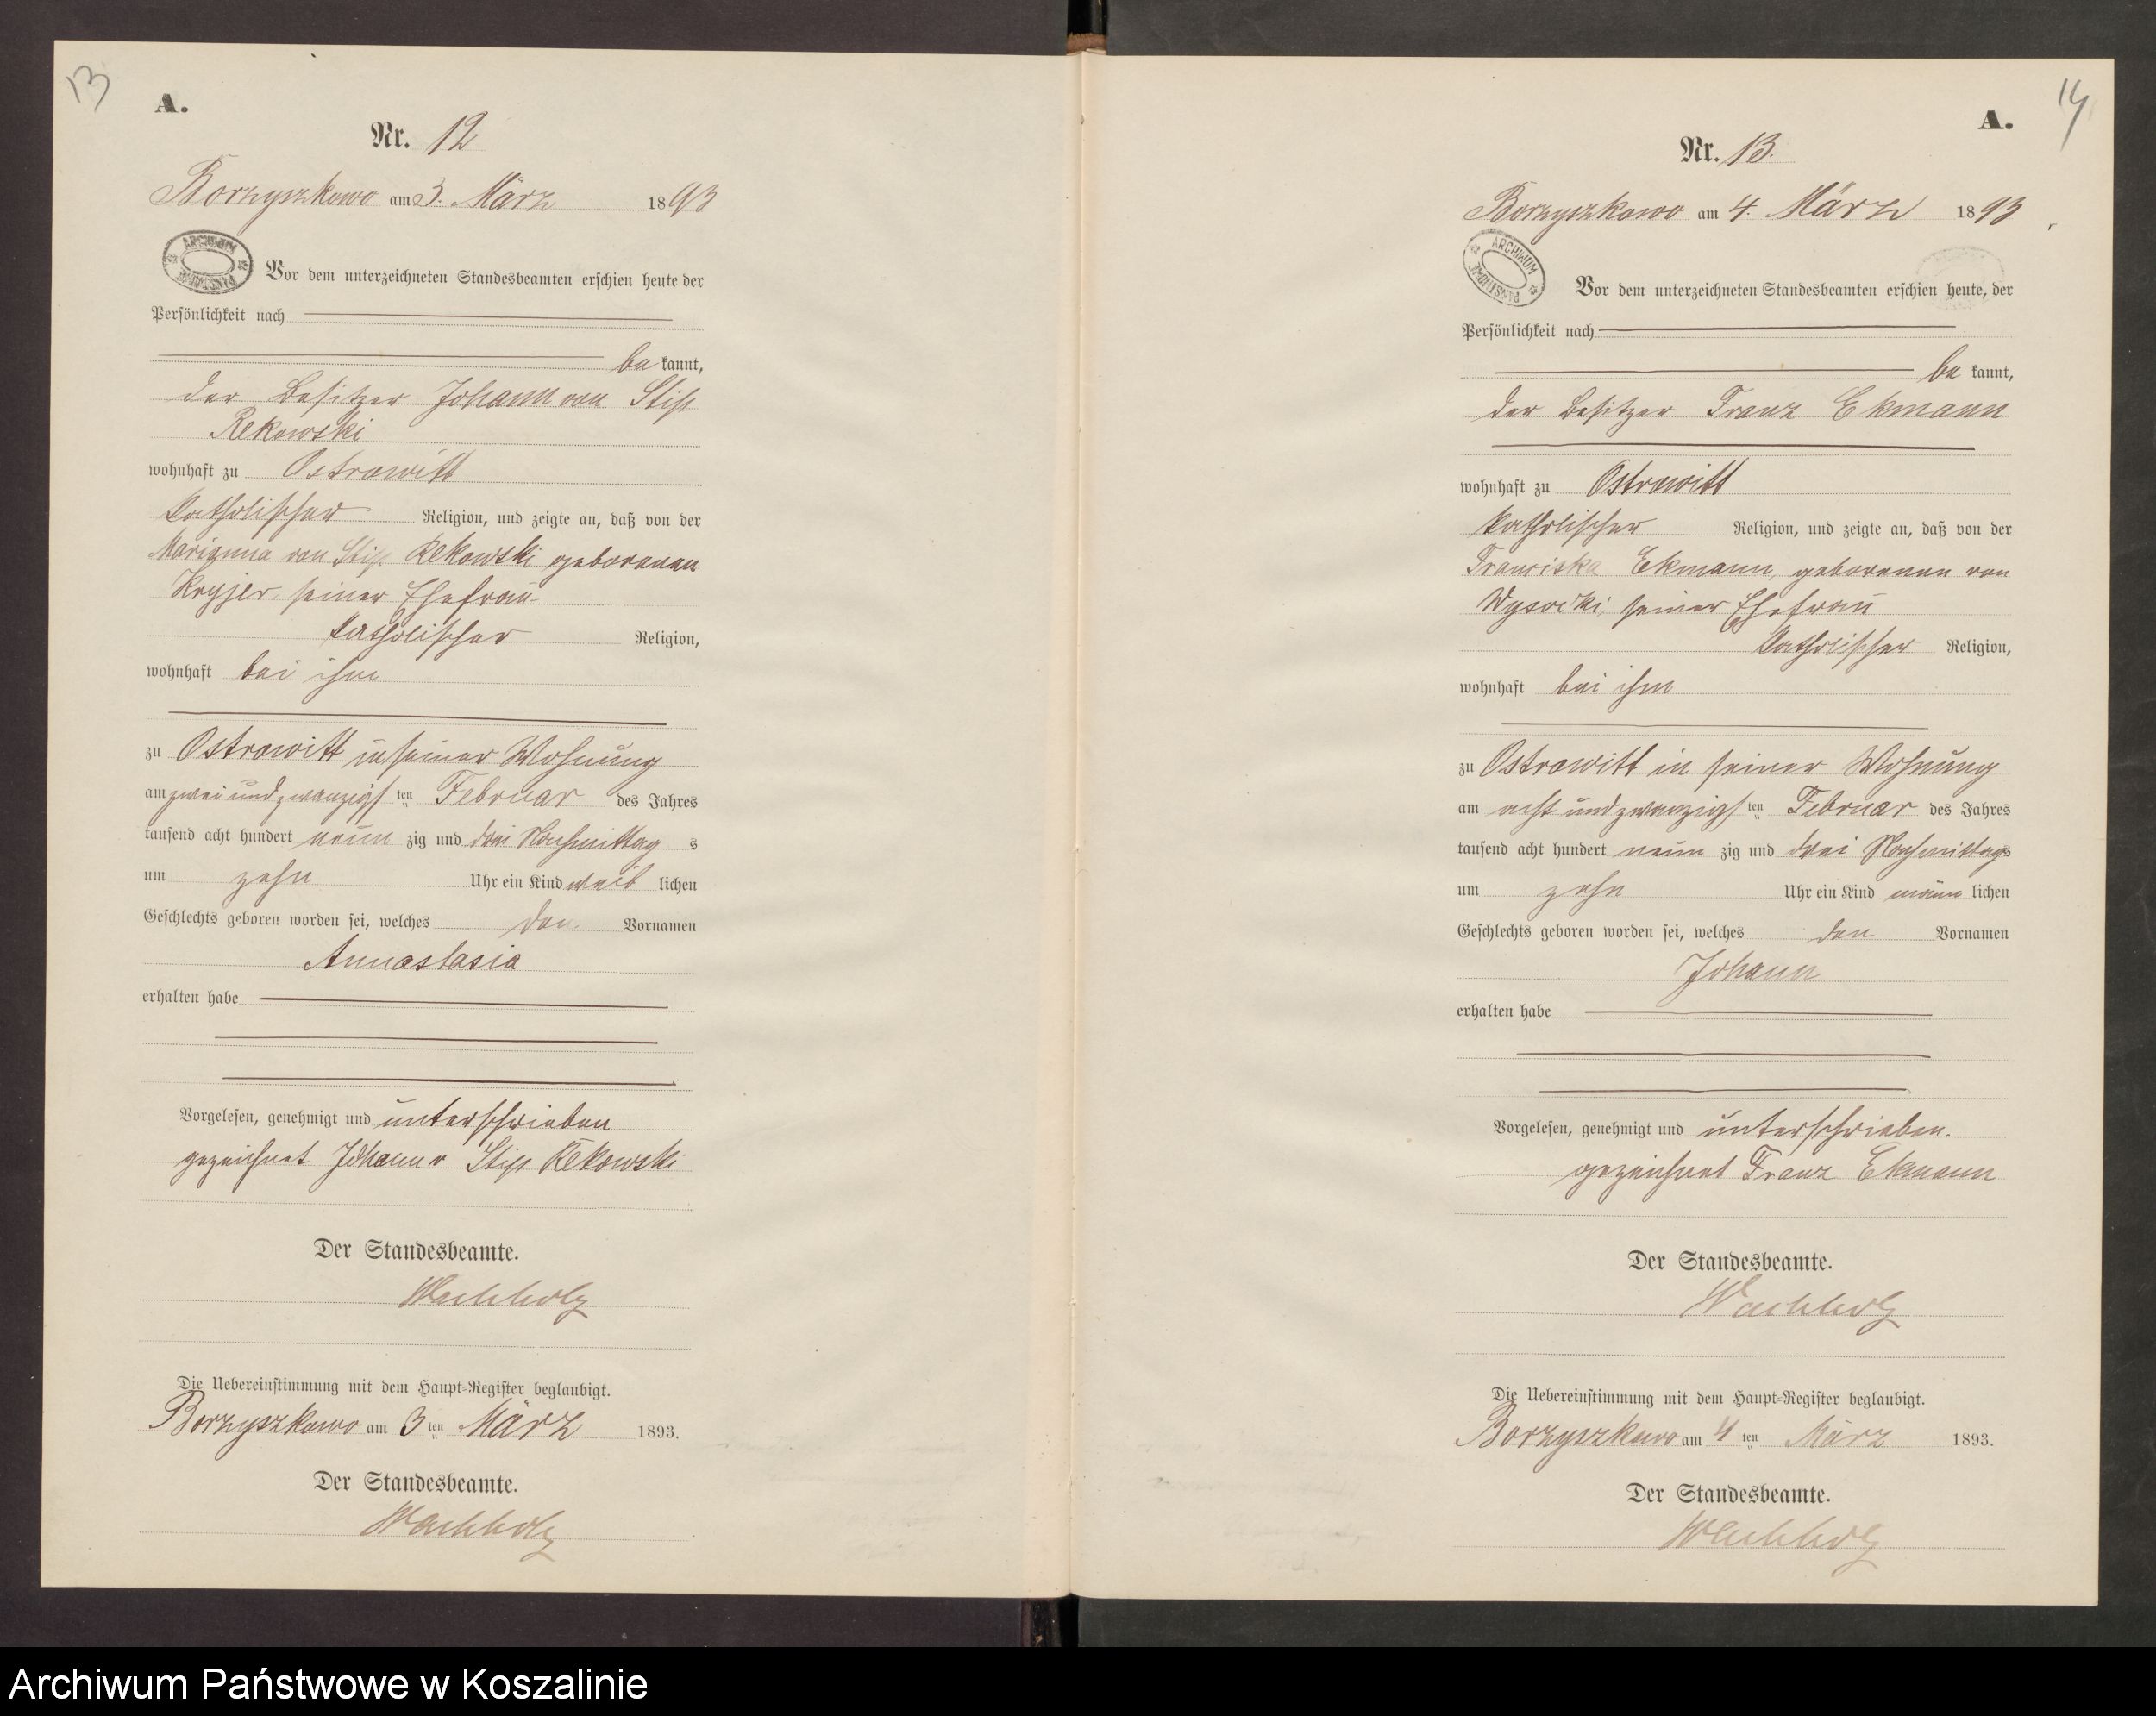 13
A.
Nr. 12
Borzyszkowo am 3. März 1893
ARCHIWUM PAŃSTWOWE
Vor dem unterzeichneten Standesbeamten erschien heute der
Persönlichkeit nach
be kannt,
der Besitzer Johann von Stip
Rekowski
wohnhaft zu Ostrowitt
katholischer Religion, und zeigte an, daß von der
Marianna von Stip. Rekowski geborenen
Kryjer, seiner Ehefrau
katholischer Religion,
wohnhaft bei ihm
zu Ostrowitt in seiner Wohnung
am zwei und zwanzigsten Februar des Jahres
tausend acht hundert neun zig und drei Nachmittag s
um zehn Uhr ein Kind weib lichen
Geschlechts geboren worden sei, welches den Vornamen
Annastasia
erhalten habe
Vorgelesen, genehmigt und unterschrieben
gezeichnet Johann v Stip Rekowski
Der Standesbeamte.
Wachholz
Die Uebereinstimmung mit dem Haupt-Register beglaubigt.
Borzyszkowo am 3 ten März 1893.
Der Standesbeamte.
Wachholz
14
A.
Nr. 13.
Borzyszkowo am 4. März 1893
ARCHIWUM PAŃSTWOWE
Vor dem unterzeichneten Standesbeamten erschien heute, der
Persönlichkeit nach
be kannt,
der Besitzer Franz Ekmann
wohnhaft zu Ostrowitt
katholischer Religion, und zeigte an, daß von der
Franciska Ekmann, geborenen von
Wysocki, seiner Ehefrau
katholischer Religion,
wohnhaft bei ihm
zu Ostrowitt in seiner Wohnung
am acht und zwanzigsten Februar des Jahres
tausend acht hundert neun zig und drei Nachmittags
um zehn Uhr ein Kind männ lichen
Geschlechts geboren worden sei, welches den Vornamen
Johann
erhalten habe
Vorgelesen, genehmigt und unterschrieben.
gezeichnet Franz Ekmann
Der Standesbeamte.
Wachholz
Die Uebereinstimmung mit dem Haupt-Register beglaubigt.
Borzyszkowo am 4 ten März 1893.
Der Standesbeamte.
Wachholz
Archiwum Państwowe w Koszalinie